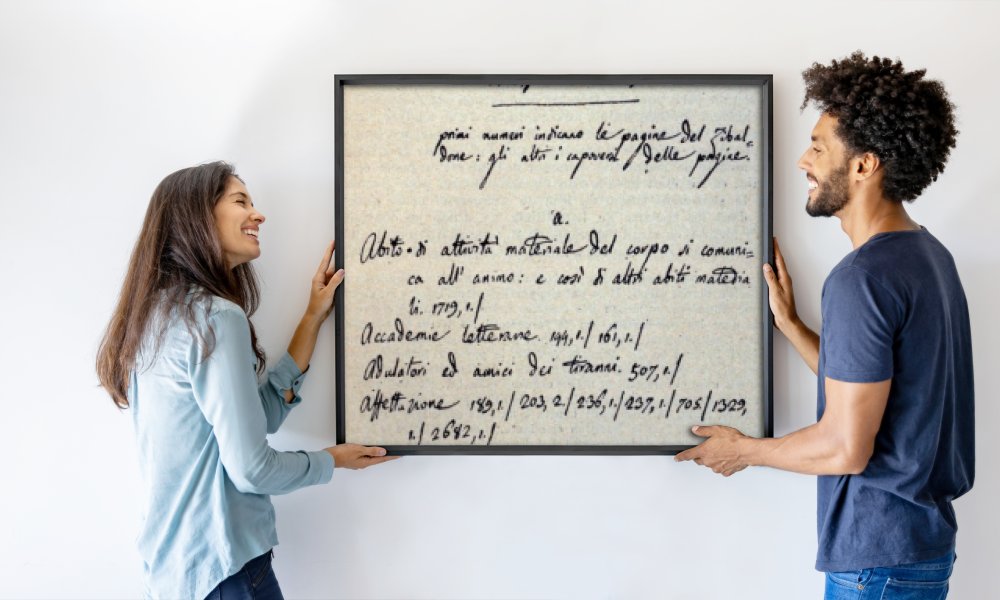 primi numeri indicano le pagine del Zibal=
done: gli altri i capoversi delle pagine.
a.
Abito di attività materiale del corpo si comuni=
ca all' animo: e così di altri abiti materia
li. 1719,1./
Accademie letterarie. 144,1./ 161,1./
Adulatori ed amici dei tiranni. 507,1./
Affettazione 189,1./ 203,2./ 236,1./ 237,1./ 705/ 1329,
1./ 2682,1./